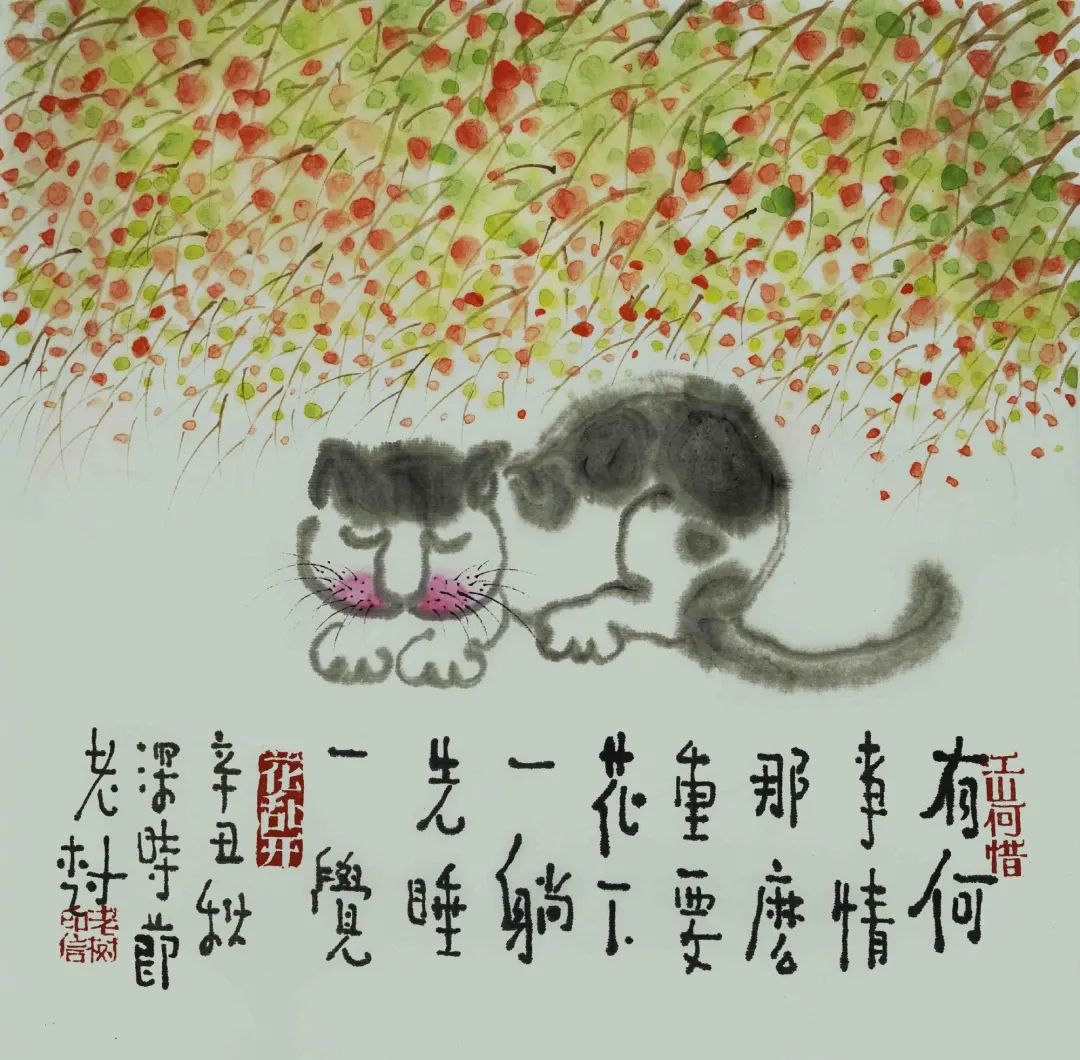 何惜
有何
事情
那麼
重要
花下
一躺
先睡
一覺
花乱开
辛丑秋
深時節
老樹
老树
印信